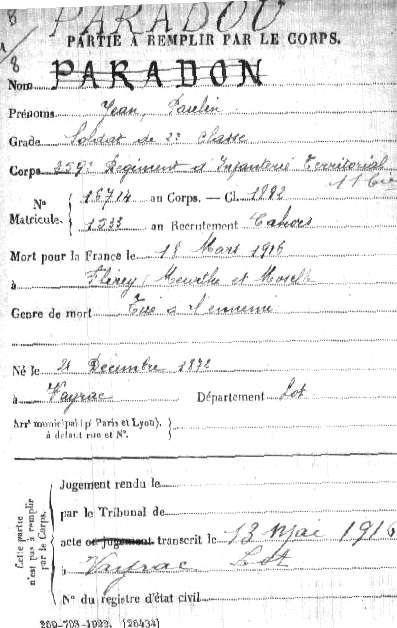 8
1/8
PARADOU
PARTIE À REMPLIR PAR LE CORPS.
Nom PARADON
Prénoms Jean,
Grade Soldat de 2e Classe
Corps Régiment d'Infanterie Territorial
11e Cie
N° Matricule. { 15714 au Corps. — Cl. 1892
1333 au Recrutement Cahors
Mort pour la France le 18 Mars 1916
à Flirey, Meurthe et Moselle
Genre de mort Tué à l'ennemi
Né le 21 Décembre 1872
à Vayrac Département Lot
Arr' municipal (p' Paris et Lyon), à défaut rue et N°. }
Cette partie n'est pas à remplir par le Corps. {
Jugement rendu le
par le Tribunal de
acte ou jugement transcrit le 13 Mai 1916
à Vayrac Lot
N° du registre d'état civil
209-708-1922. [26434]